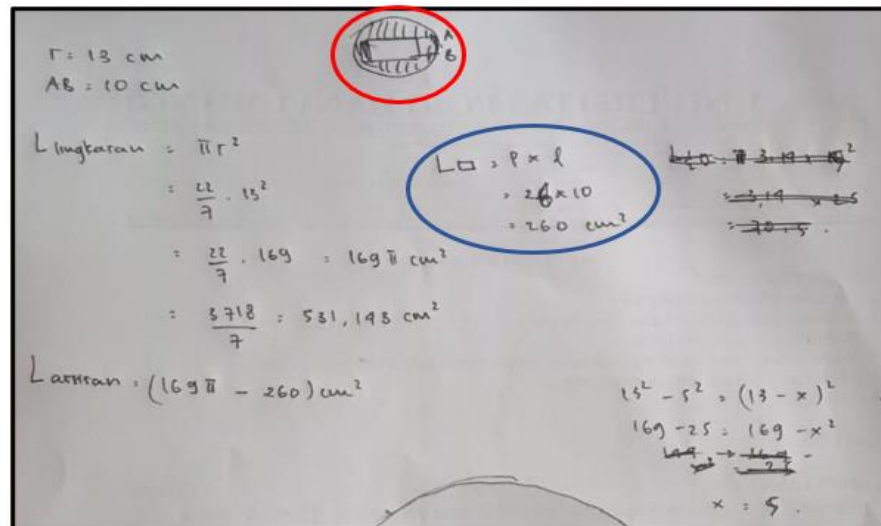 r = 13 cm
AB = 10 cm
A
B
L lingkaran = πr²
= 22/7 . 13²
= 22/7 . 169 = 169 π cm²
= 3718/7 = 531,143 cm²
L arsiran = (169 π - 260) cm²
L □ = p x l
= 26 x 10
= 260 cm²
= 3,14 x 25
= 70.5 .
13² - 5² = (13 - x)²
169 - 25 = 169 - x²
x = 5 .